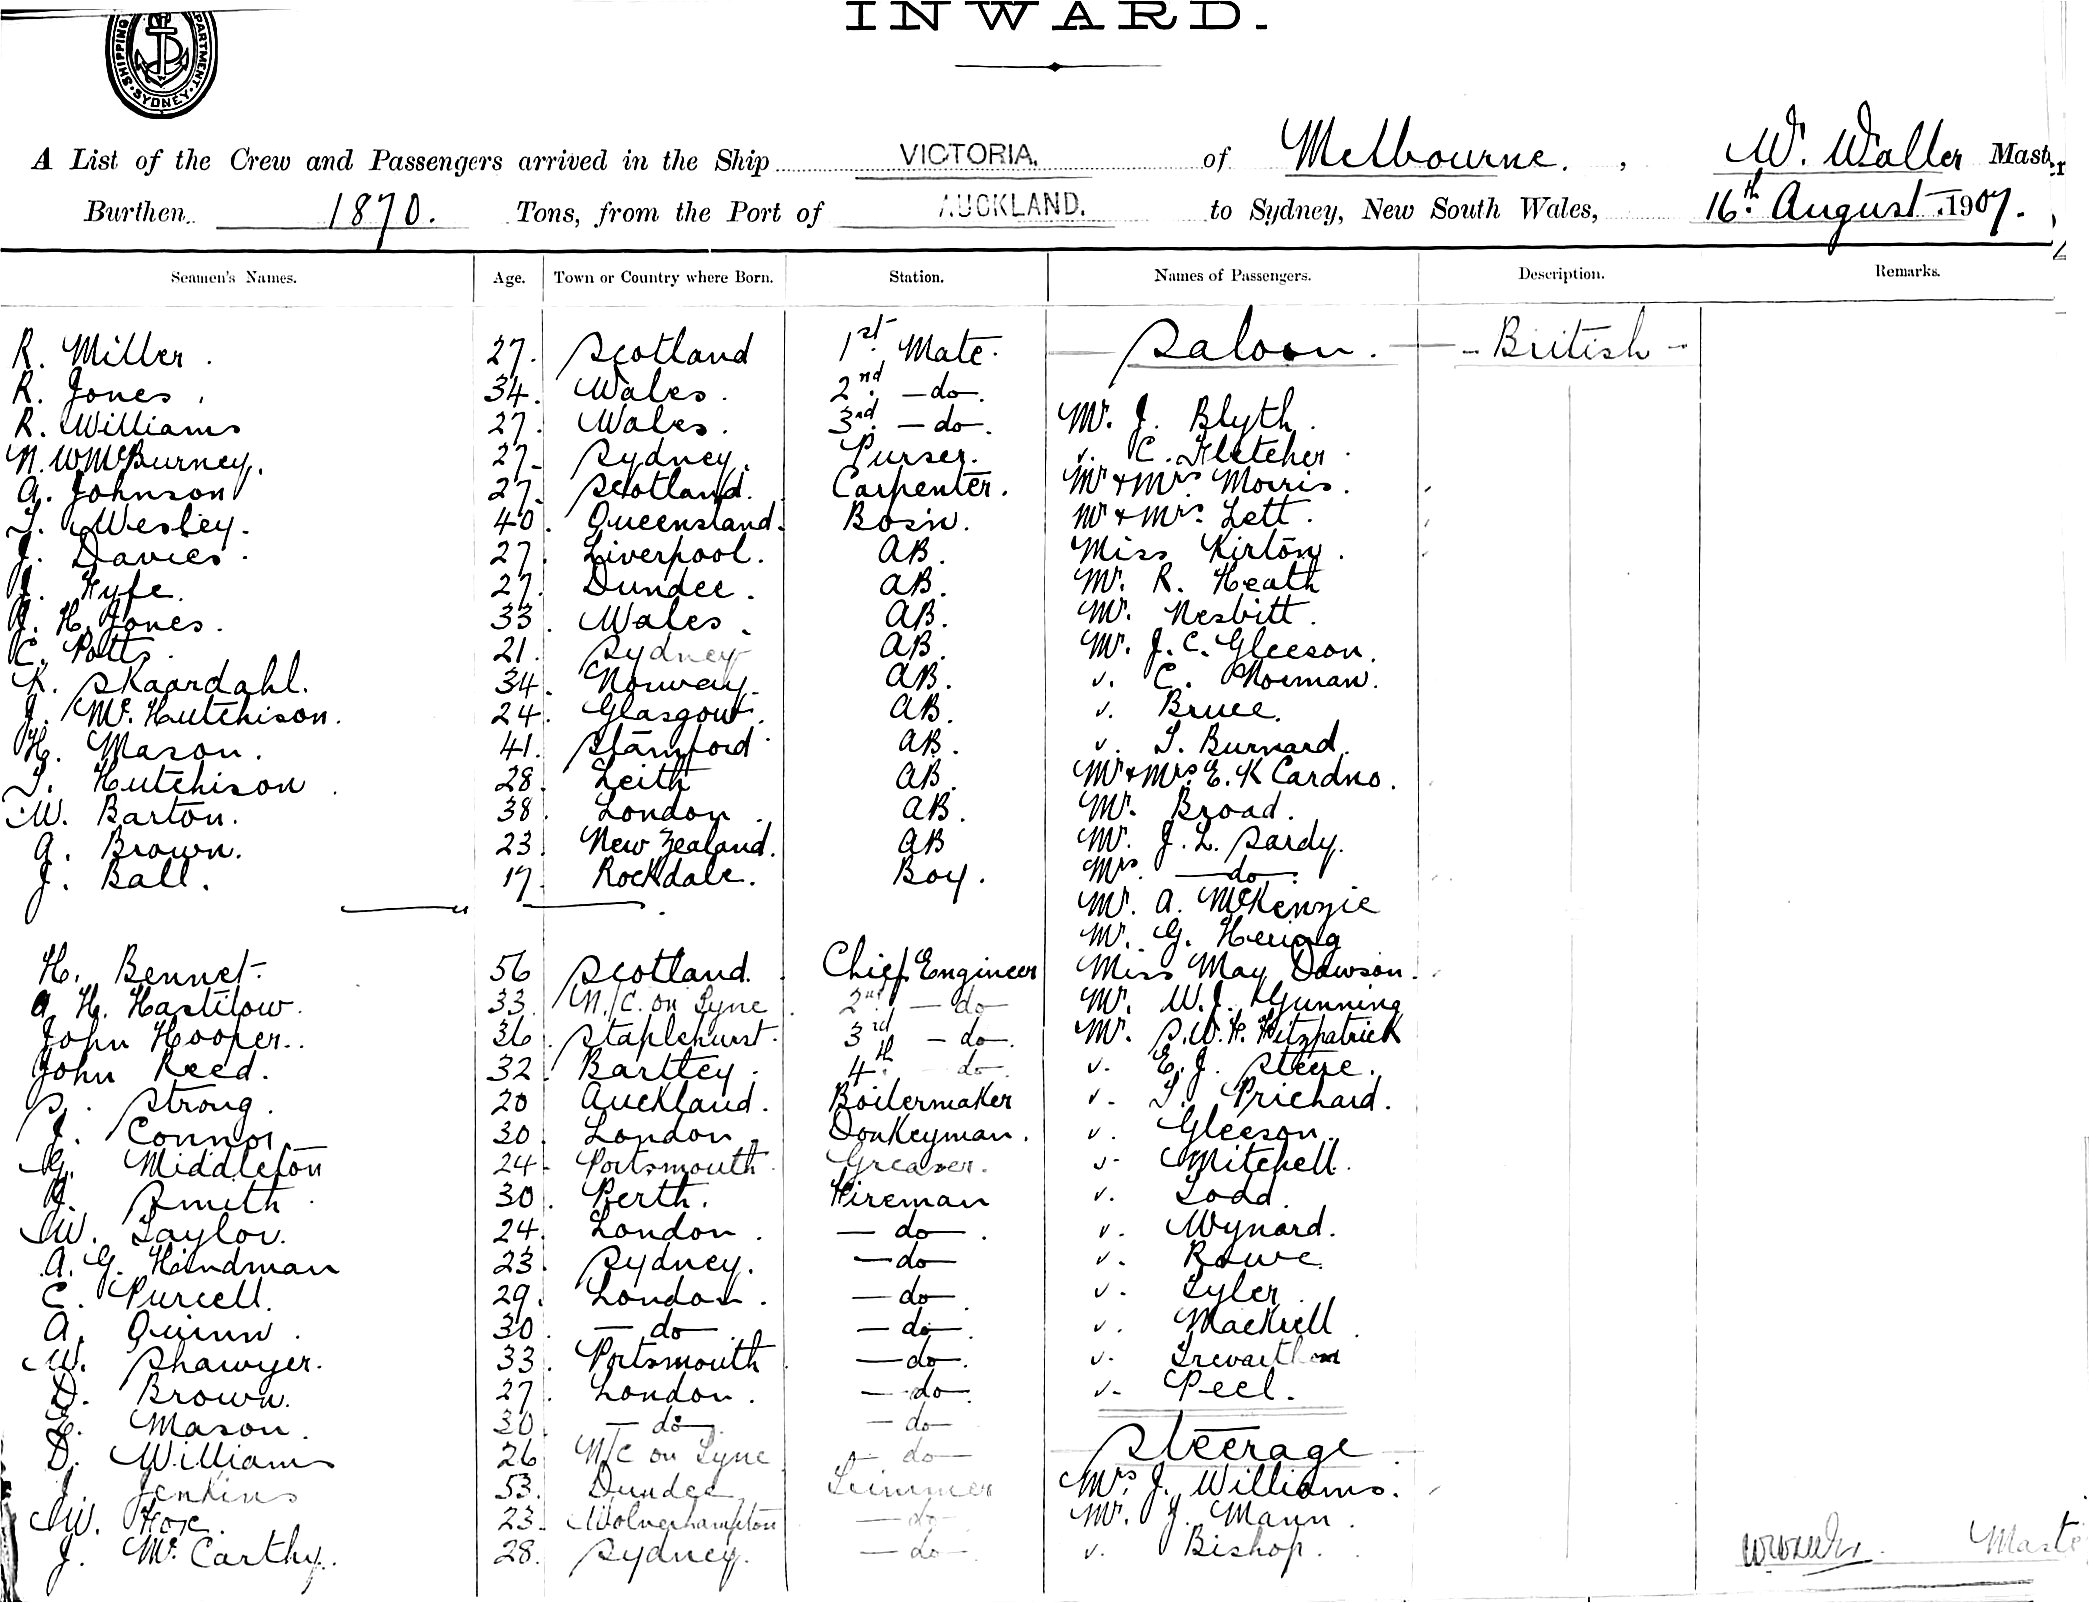 INWARD.
SHIPPING DEPARTMENT. SYDNEY.
A List of the Crew and Passengers arrived in the Ship VICTORIA. of Melbourne. , W. Waller Master
Burthen 1870. Tons, from the Port of AUCKLAND. to Sydney, New South Wales, 16th August 1907.
Seamen's Names. Age. Town or Country where Born. Station. Names of Passengers. Description. Remarks.
R. Miller. 27. Scotland 1st Mate. Saloon. - British -
R. Jones. 34. Wales. 2nd - do.
R. Williams 27. Wales. 3rd - do. Mr. J. Blyth.
N. W McBurney. 27. Sydney. Purser. " C. Fletcher.
A. Johnson 27. Scotland. Carpenter. Mr & Mrs Morris.
T. Wesley. 40. Queensland. Bosin. Mr & Mrs. Lett.
J. Davies. 27. Liverpool. AB. Miss Kirton.
J. Fyfe. 27. Dundee. AB. Mr. R. Heath
J. H. Jones. 33. Wales. AB. Mr. Nesbitt.
C. Potts. 21. Sydney AB. Mr. J. C. Gleeson.
K. Skaardahl. 34. Norway. AB. " C. Norman.
J. McHutchison. 24. Glasgow. AB. " Bruce.
H. Mason. 41. Stamford AB. " T. Burnard.
T. Hutchison 28. Leith AB. Mr & Mrs. E. K Cardno.
W. Barton. 38. London. AB. Mr. Broad.
A. Brown. 23. New Zealand. AB Mr. J. L. Sardy.
J. Ball. 17. Rockdale. Boy. Mrs. - do -.
Mr. A. McKenzie
Mr. G. Hering
H. Bennet. 56 Scotland. Chief Engineer Miss May Dawson.
A H. Hastilow. 33. N/C. on Tyne 2nd - do Mr. W. J. Gunning
John Hooper. 36. Staplehurst. 3rd - do. Mr. S. W. H. Fitzpatrick
John Reed. 32. Bartley. 4th do. " E. J. Steere.
S. Strong. 20 Auckland. Boilermaker " T. Prichard.
J. Connor. 30. London. Donkeyman. " Gleeson.
G. Middleton 24. Portsmouth. Greaser. " Mitchell.
J. Smith. 30. Perth. Fireman " Todd.
W. Taylor. 24. London. - do -. " Wynard.
A. G. Hindman 23. Sydney. - do - " Rowe.
C. Purcell. 29. London. - do - " Tyler.
A. Quinn. 30. - do -. - do - " Mackrell.
W. Shawyer. 33. Portsmouth. - do. " Trevarthen
D. Brown. 27. London. - do - " Peel.
E. Mason. 30. - do - - do -
D. Williams 26 N/C on Tyne - do - Steerage
J. Jenkins 53. Dundee Trimmer Mrs. J. Williams.
W. Fox. 23. Wolverhampton - do - Mr. J. Mann.
J. McCarthy. 28. Sydney. - do - " Bishop. Master